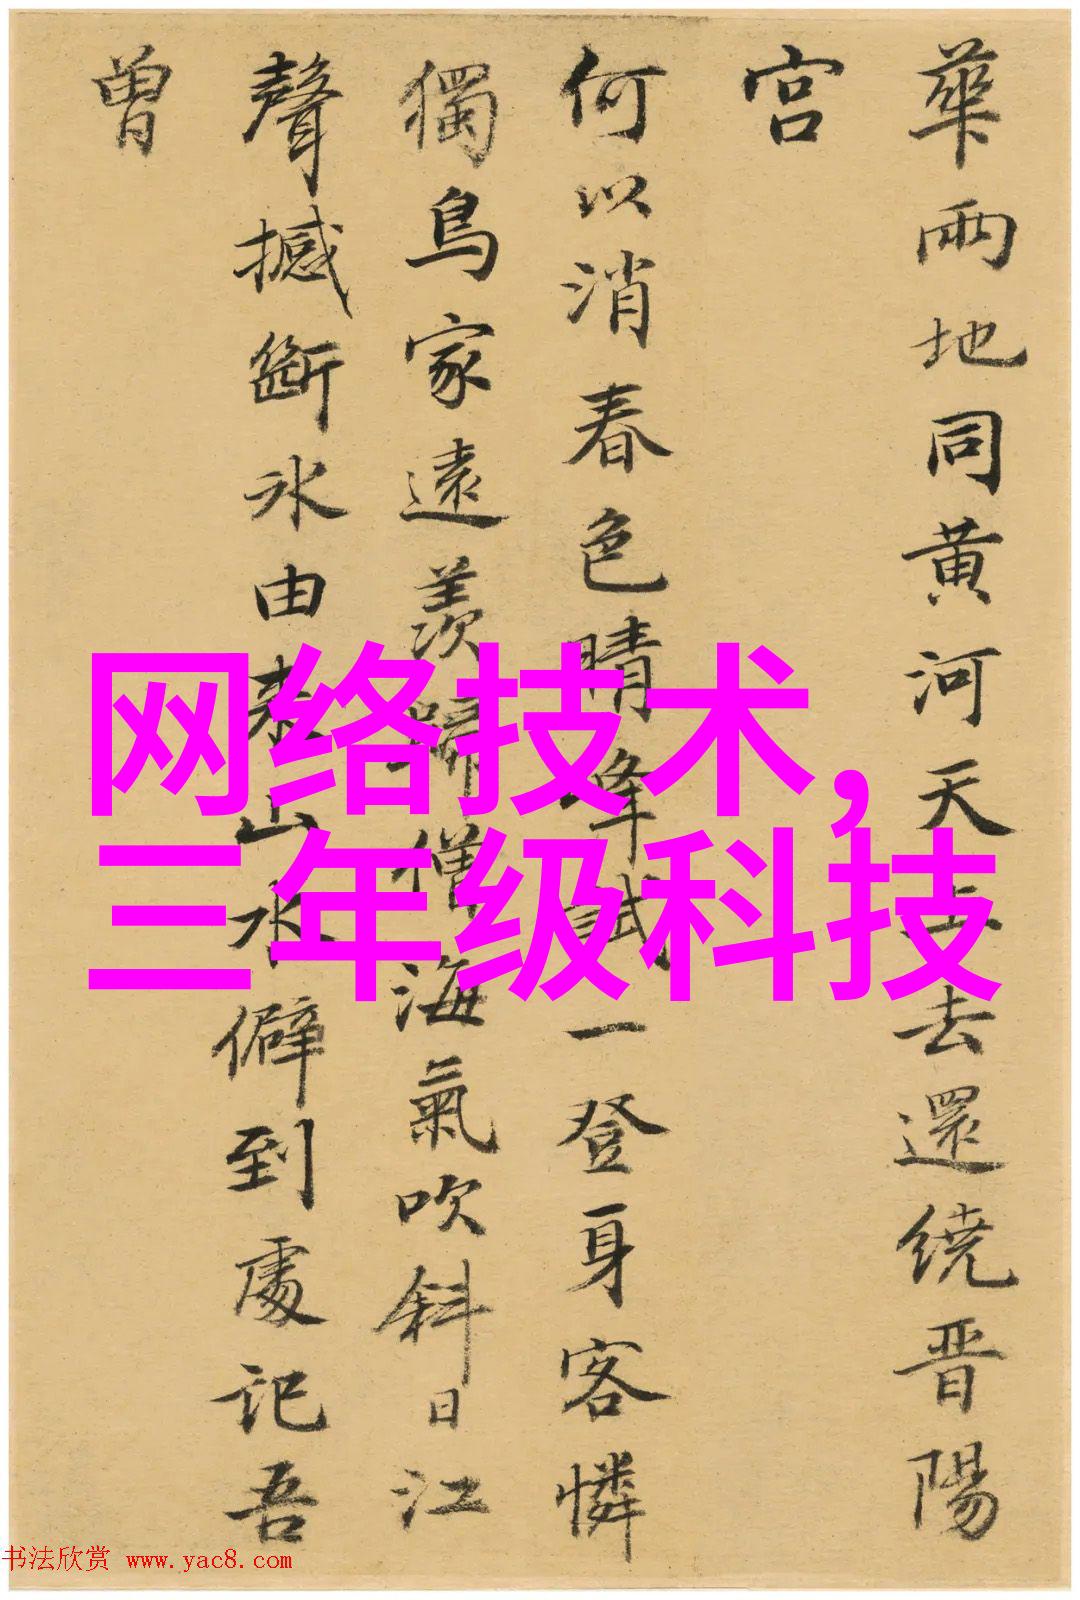 華兩地同黄河天上去還繞晋陽
宫
何以消春色晴峰試一登身客憐
獨鳥家遠羨歸僧海氣吹斜日江
聲撼斷冰由來山水僻到處記吾
曾
网络技术,
三年级科技
书法欣赏 www.yac8.com